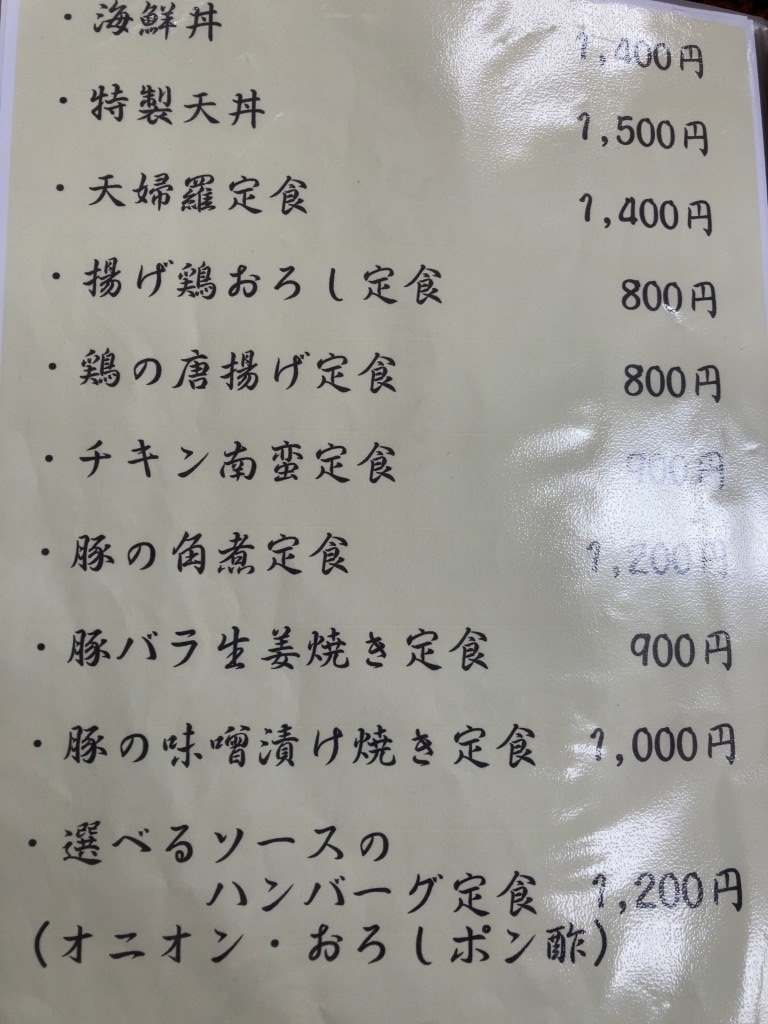 ・海鮮丼 1,400円
・特製天丼 1,500円
・天婦羅定食 1,400円
・揚げ鶏おろし定食 800円
・鶏の唐揚げ定食 800円
・チキン南蛮定食 900円
・豚の角煮定食 1,200円
・豚バラ生姜焼き定食 900円
・豚の味噌漬け焼き定食 1,000円
・選べるソースの
ハンバーグ定食 1,200円
(オニオン・おろしポン酢)